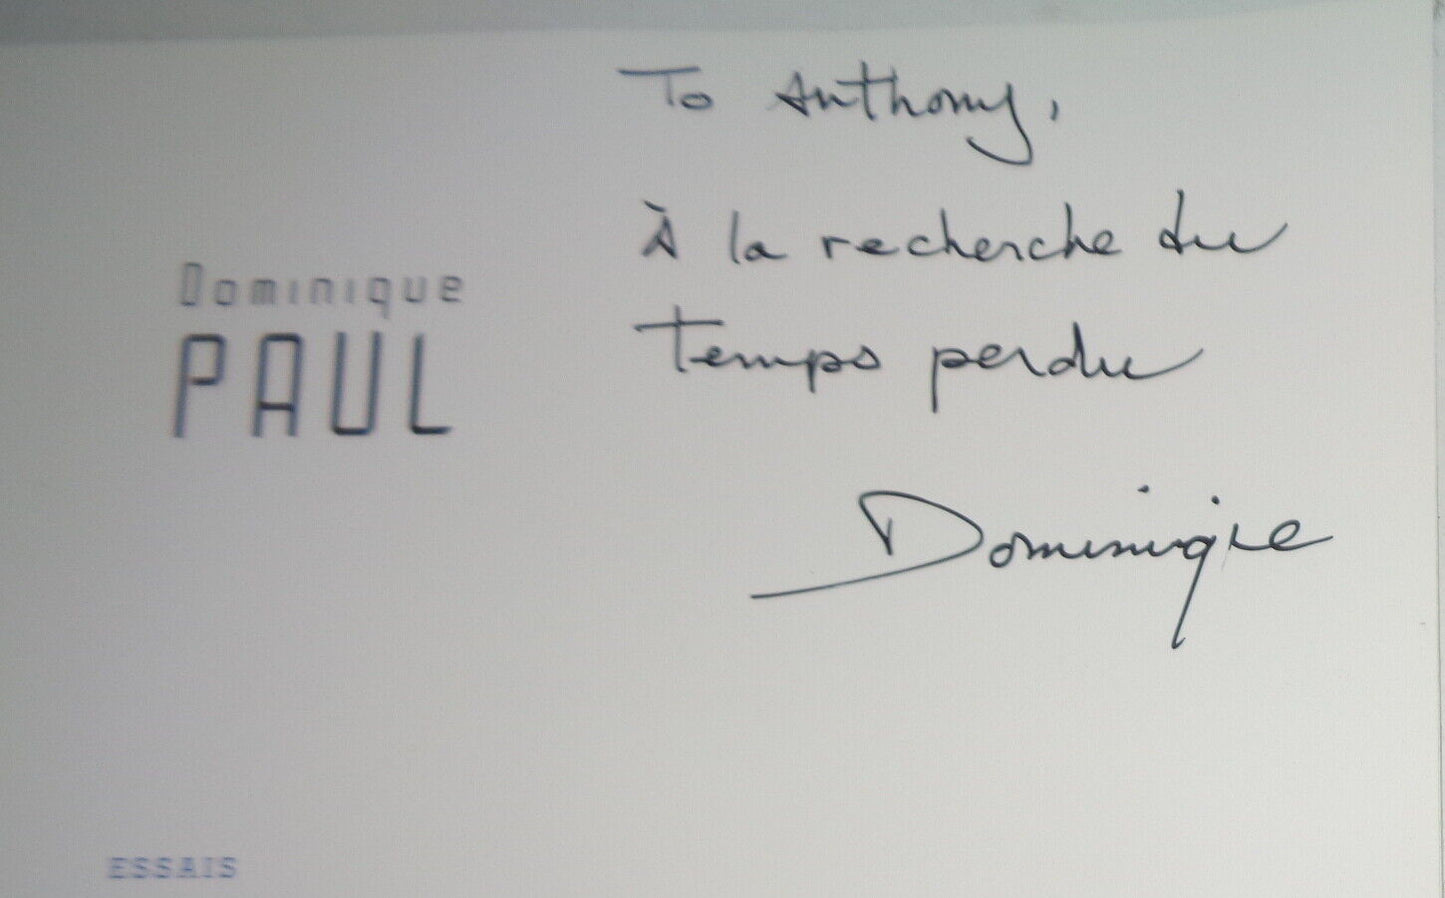 To Anthony,
À la recherche du
temps perdu
Dominique
Dominique
PAUL
ESSAIS